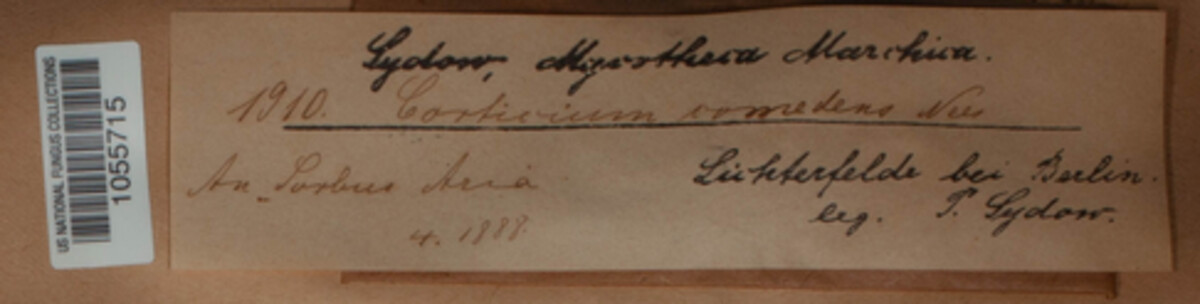 US NATIONAL FUNGUS COLLECTIONS
1055715
Sydow, Mycotheca Marchica.
1910. Corticium comedens Nees
An Sorbus Aria
4. 1888.
Lichterfelde bei Berlin.
leg. P. Sydow.